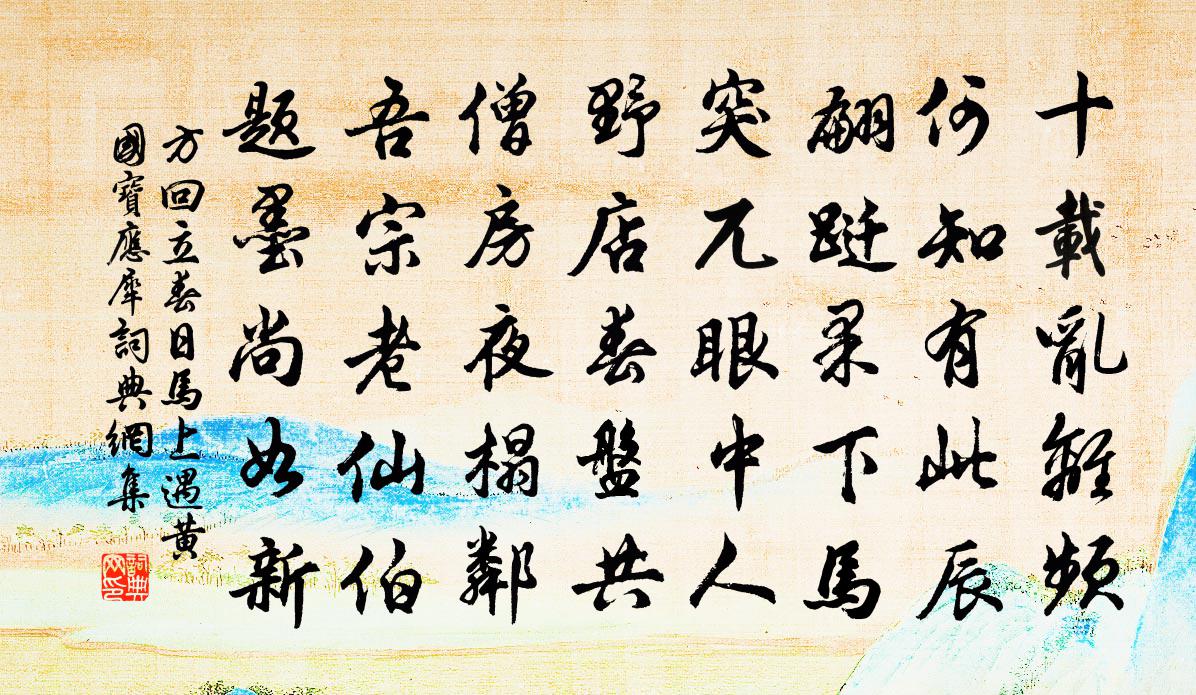 十載亂離頻
何知有此辰
翩跹果下馬
突兀眼中人
野店春盤共
僧房夜榻鄰
吾宗老仙伯
題墨尚如新
方回立春日馬上遇黃
國寶應犀詞典網集
詞典
网印